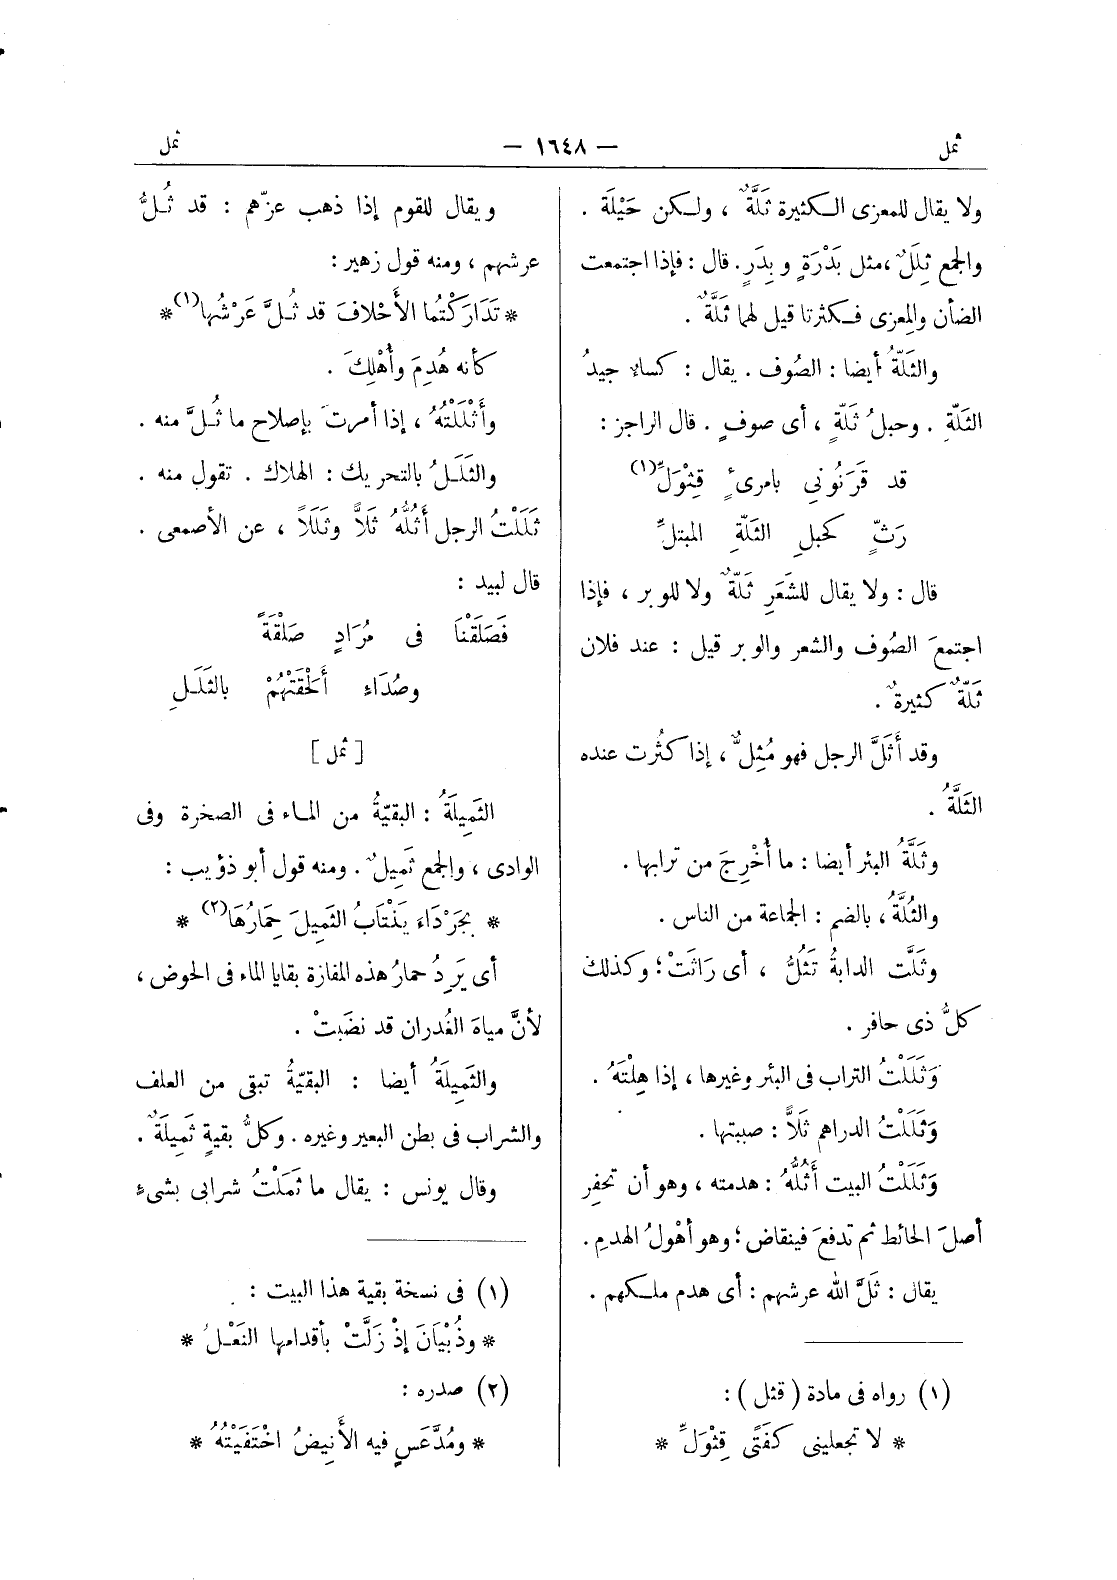 ثمل
— ١٦٤٨ —
ثمل
ولا يقال للمعزى الكثيرة ثَلَّةٌ ، ولكن حَيْلَة .
والجمع ثِلَلٌ ،مثل بَدْرَةٍ و بِدَرٍ. قال : فإذا اجتمعت
الضأن والمِعزى فكثرتا قيل لهما ثَلَّةٌ .
والثَلّةُ أيضا : الصُوف . يقال : كساء جيدُ
الثَلّةِ . وحبلُ ثَلّةٍ ، أى صوفٍ . قال الراجز :
قد قَرَنُونِى بامرىءٍ قِثْوَلِّ(١)
رَثٍّ كحبلِ الثَلّةِ المبتلِّ
قال : ولا يقال للشَعَرِ ثَلّةٌ ولا للوبر ، فإذا
اجتمعَ الصُوف والشعر والوبر قيل : عند فلان
ثَلّةٌ كثيرةٌ .
وقد أَثَلَّ الرجل فهو مُثِلٌّ ، إذا كثُرت عنده
الثَلَّةُ .
وثَلَّةُ البئر أيضا : ما أُخْرِجَ من ترابها .
والثُلَّةُ ، بالضم : الجماعة من الناس .
وثَلَّت الدابةُ تَثُلُّ ، أى رَاثَتْ ؛ وكذلك
كلُّ ذى حافر .
وَثَلَلْتُ التراب فى البئر وغيرها ، إذا هِلْتَهُ .
وَثَلَلْتُ الدراهم ثَلاًّ : صببتها .
وَثَلَلْتُ البيت أَثُلُّهُ : هدمته ، وهو أن تحفِر
أصلَ الحائط ثم تدفعَ فينقاض ؛ وهو أهْولُ الهدمِ .
يقال : ثَلَّ الله عرشهم : أى هدم ملكهم .
(١) رواه فى مادة ( قثل ) :
* لا تجعلينى كفَتًى قِثْوَلِّ *
ويقال للقوم إذا ذهب عزّهم : قد ثُلَّ
عرشهم ، ومنه قول زهير :
* تَدَارَكْتُما الأَحْلافَ قد ثُلَّ عَرْشُها(١) *
كأنه هُدِمَ وأُهْلِكَ .
وأَثْلَلْتُهُ ، إذا أمرتَ بإصلاح ما ثُلَّ منه .
والثَلَلُ بالتحريك : الهلاك . تقول منه .
ثَلَلْتُ الرجل أَثُلُّهُ ثَلاًّ وثَلَلاً ، عن الأصمعى .
قال لبيد :
فَصَلَقْنَا فى مُرَادٍ صَلْقَةً
وصُدَاءٍ أَلْحَقَتْهُمْ بالثَلَلِ
[ ثمل ]
الثَمِيلَةُ : البقيّةُ من الماء فى الصخرة وفى
الوادى ، والجمع ثَمِيلٌ . ومنه قول أبو ذؤيب :
* بجَرْدَاءَ يَنْتَابُ الثَمِيلَ حِمَارُهَا(٢) *
أى يَرِدُ حمارُ هذه المفازة بقايا الماء فى الحوض ،
لأنَّ مياهَ الغُدران قد نضَبتْ .
والثَمِيلَةُ أيضا : البقيّةُ تبقى من العلف
والشراب فى بطن البعير وغيره . وكلُّ بقيةٍ ثَمِيلَةٌ .
وقال يونس : يقال ما ثَمَلْتُ شرابى بشىءٍ
(١) فى نسخة بقية هذا البيت :
* وذُبْيَانَ إذْ زَلَّتْ بأقدامها النَعْلُ *
(٢) صدره :
* ومُدَّعَسٍ فيه الأَنِيضُ اخْتَفَيْتُهُ *